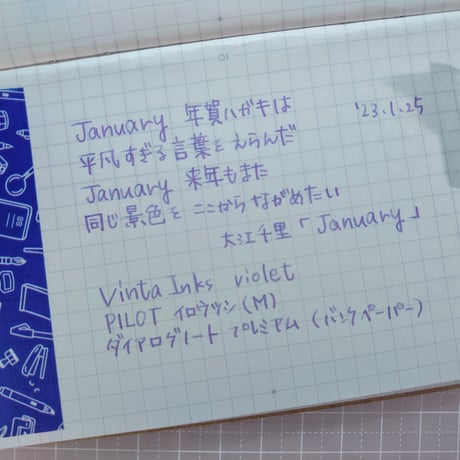 01
January 年賀ハガキは
'23.1.25
平凡すぎる言葉をえらんだ
January 来年もまた
同じ景色を ここから ながめたい
大江千里「January」
Vinta Inks violet
PILOT イロウツシ(M)
ダイアログノート プレミアム(バンクペーパー)